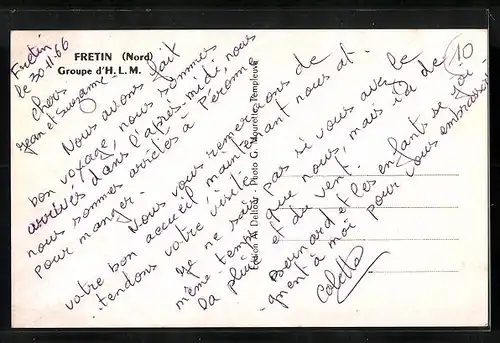 FRETIN (Nord)
Groupe d'H.L.M.
Fretin
le 30-11-66
Chers
Jean et Suzanne
Nous avons fait
bon voyage, nous sommes
arrivés dans l'après-midi, nous
nous sommes arrêtés à Peronne
pour manger.
Nous vous remercions de
votre bon accueil maintenant nous at-
tendons votre visite.
Je ne sais pas si vous avez le
même temps que nous, mais ici de
la pluie et du vent.
Bernard et les enfants se joi-
gnent à moi pour vous embrasser
Colette
10
Edition A. Deltour - Photo G. Mourette, Templeuve